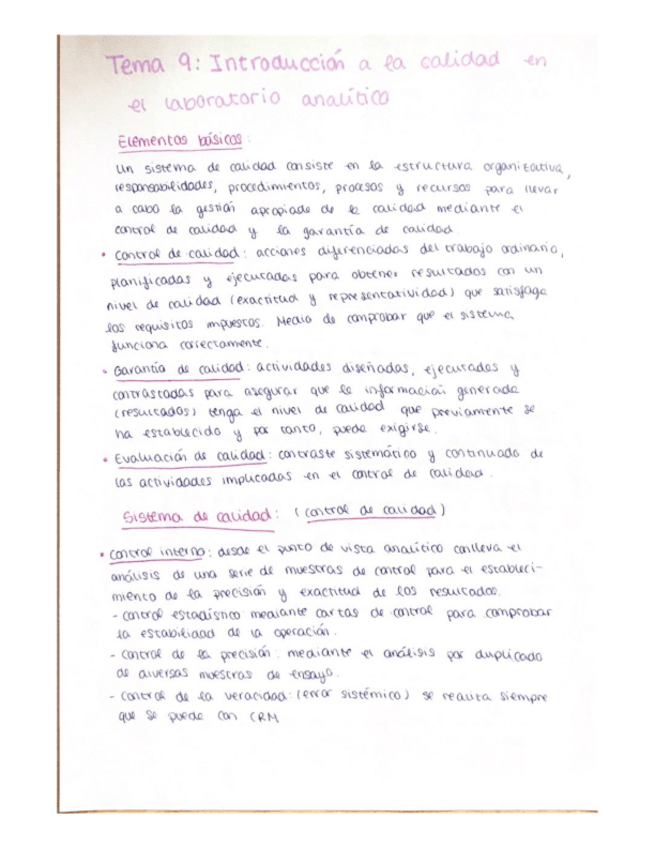 Tema 9: Introducción a la calidad en
el laboratorio analítico
Elementos básicos:
Un sistema de calidad consiste en la estructura organizativa,
responsabilidades, procedimientos, procesos y recursos para llevar
a cabo la gestión apropiada de la calidad mediante el
control de calidad y la garantía de calidad
• Control de calidad: acciones diferenciadas del trabajo ordinario,
planificadas y ejecutadas para obtener resultados con un
nivel de calidad (exactitud y representatividad) que satisfaga
los requisitos impuestos. Medio de comprobar que el sistema
funciona correctamente.
• Garantía de calidad: actividades diseñadas, ejecutadas y
contrastadas para asegurar que la información generada
(resultados) tenga el nivel de calidad que previamente se
ha establecido y por tanto, puede exigirse.
• Evaluación de calidad: contraste sistemático y continuado de
las actividades implicadas en el control de calidad.
Sistema de calidad: (control de calidad)
• Control interno: desde el punto de vista analítico conlleva el
análisis de una serie de muestras de control para el estableci-
miento de la precisión y exactitud de los resultados.
- Control estadístico: mediante cartas de control para comprobar
la estabilidad de la operación.
- Control de la precisión: mediante el análisis por duplicado
de diversas muestras de ensayo.
- Control de la veracidad: (error sistémico) se realiza siempre
que se puede con CRM